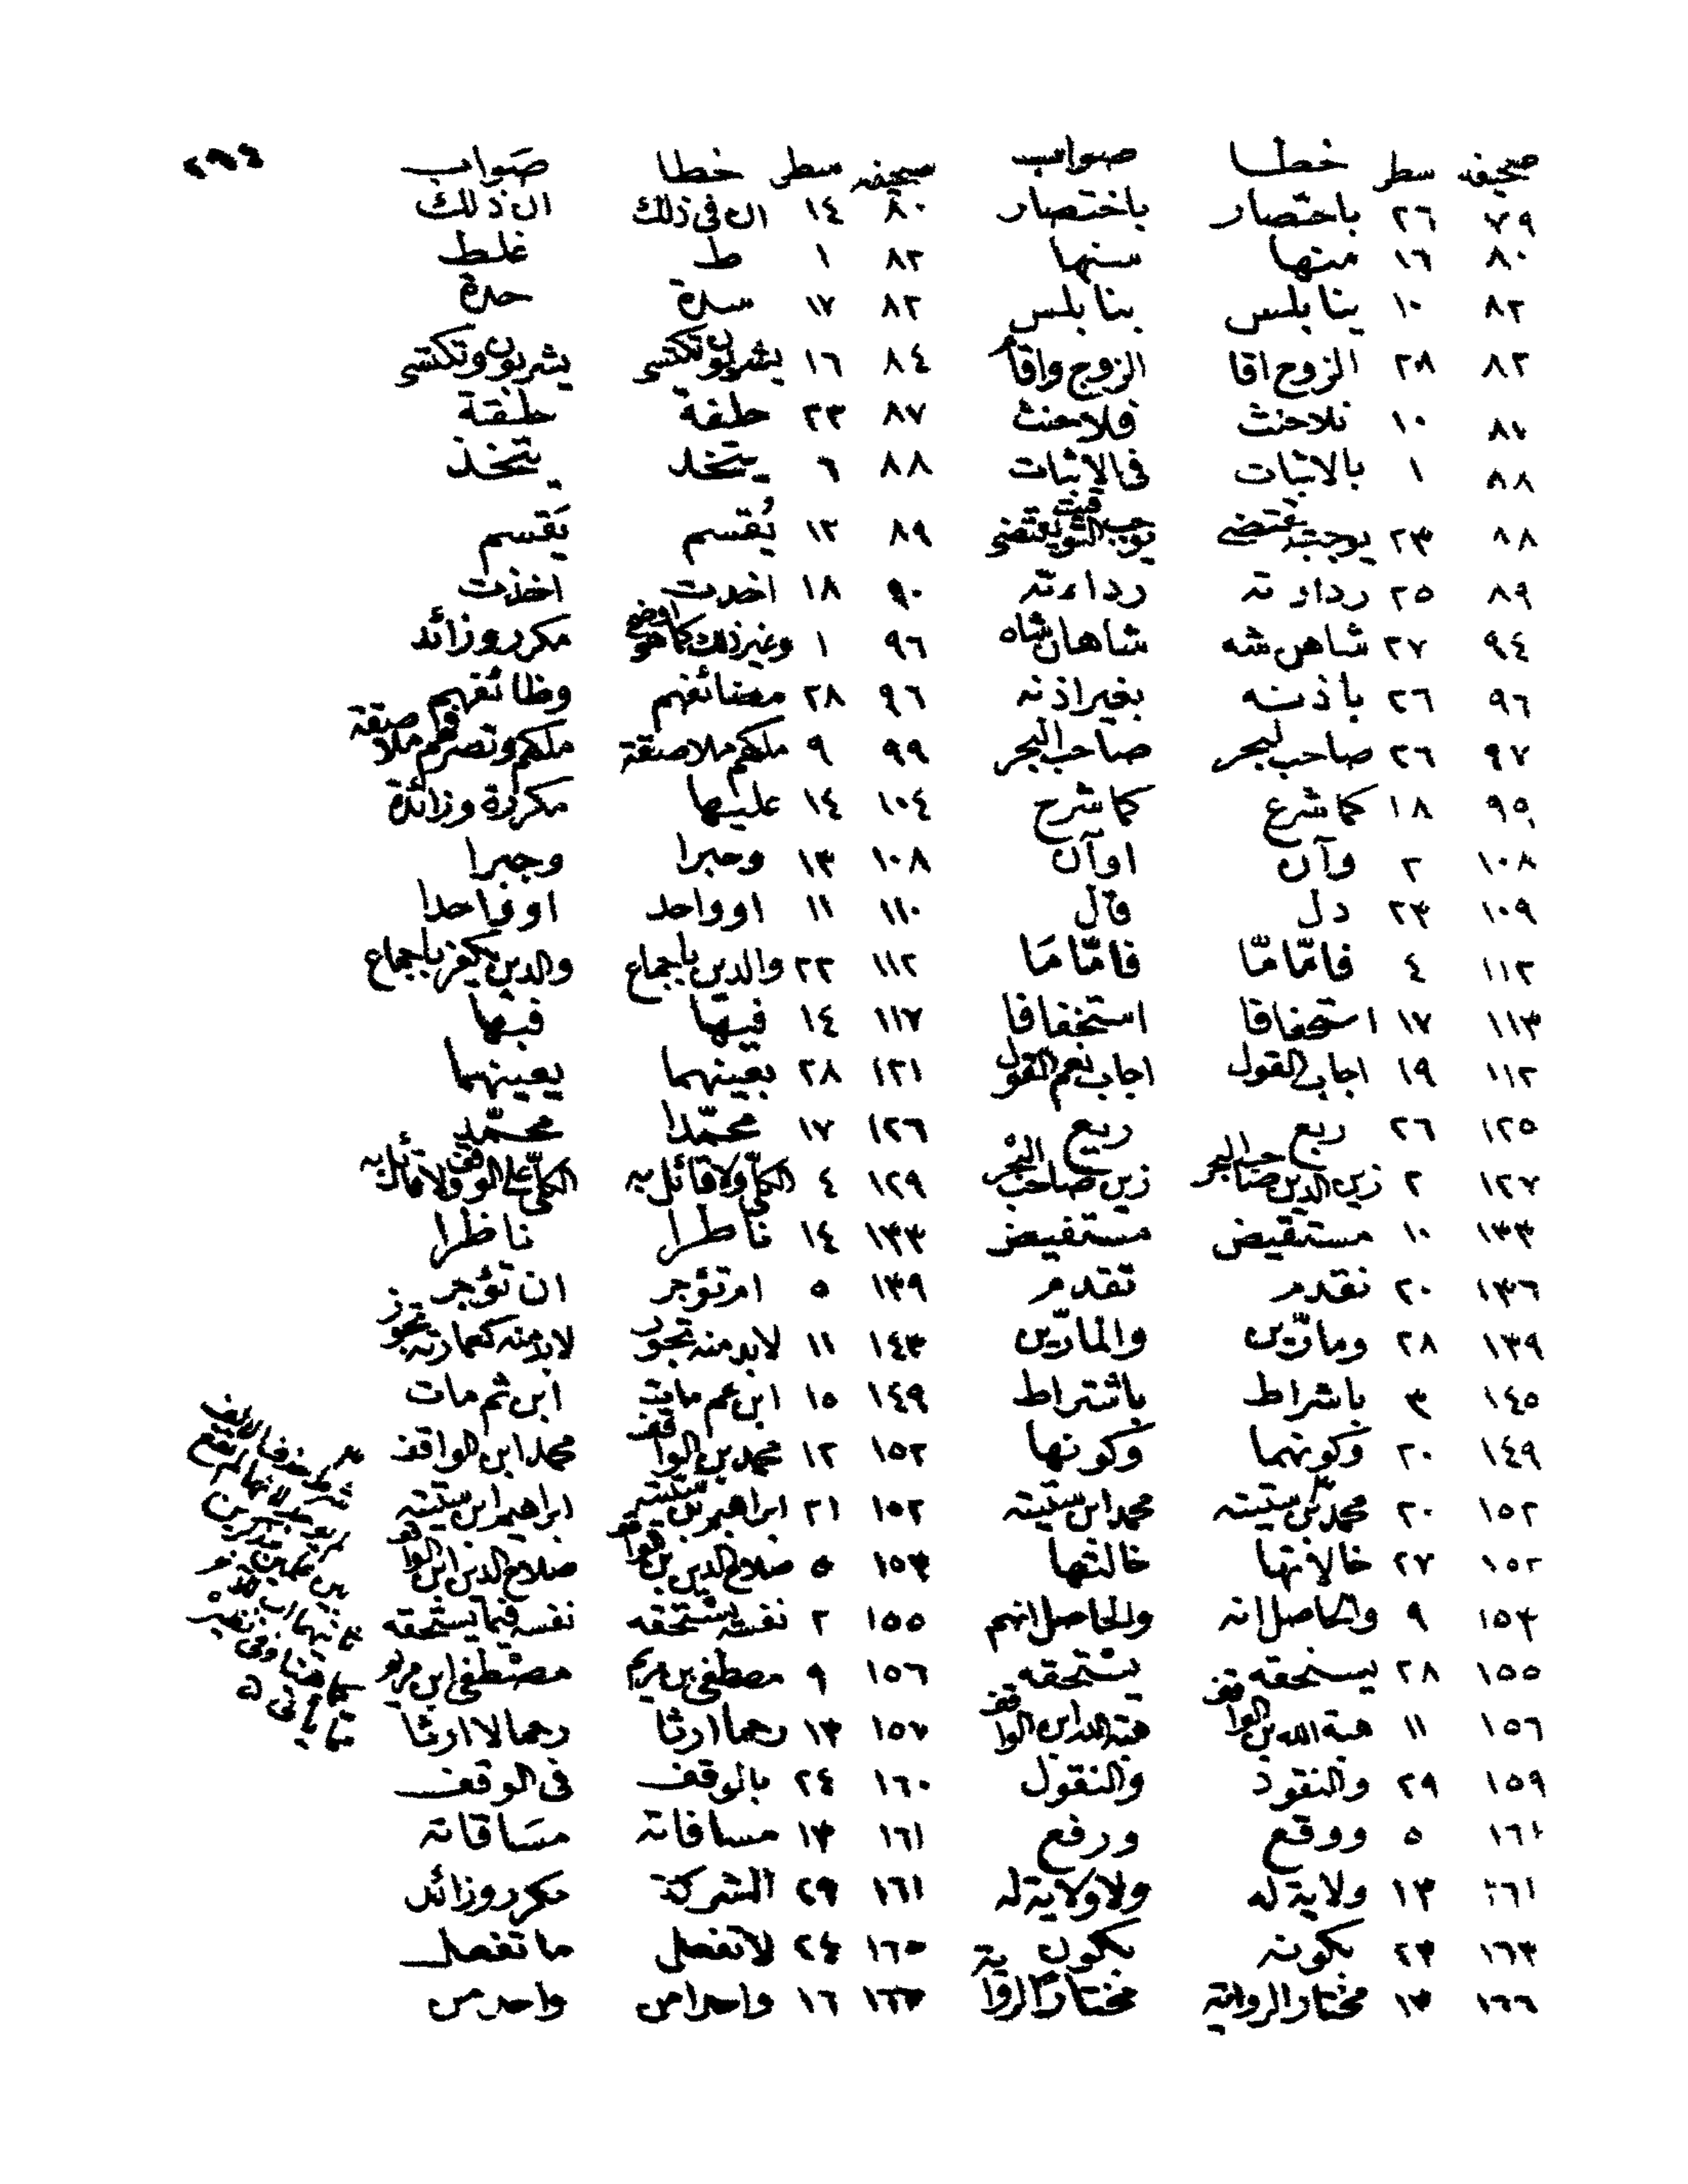 صحيفه سطر خطا صواب صحيفه سطر خطا صواب ٢٩٤
٧٩ ٢٦ باحتصار باختصار ٨٠ ١٤ ان فى ذلك ان ذلك
٨٠ ١٦ منها سنها ٨٢ ١ ط غلط
٨٢ ١٠ ينابلس بنابلس ٨٢ ١٧ سدة حدة
٨٢ ٢٨ الزوح اقا الزوج واقام ٨٤ ١٦ يشربون تكتسى يشربون وتكتسى
٨٧ ١٠ نلاحنث فلاحنث ٨٧ ٢٣ طلفة طلقة
٨٨ ١ بالاثبات فى الاثبات ٨٨ ٦ يتخد يتخذ
٨٨ ٢٣ ٨٩ ١٢ يُقسم يَقسم
٨٩ ٢٥ رداد ته رداءته ٩٠ ١٨ اخدت اخذت
٩٤ ٢٧ شاهن شه شاهان شاه ٩٦ ١ وغير ذلك كما هو اوضح مكرر وزائد
٩٦ ٢٦ باذنه بغير اذنه ٩٦ ٢٨ مضائفهم وظائفهم
٩٧ ٢٦ صاحب لبحر صاحب البحر ٩٩ ٩ ملكهم ملاصقة ملكهم وتصرفهم ملاصقة
٩٥ ١٨ كما شرع كما شرح ١٠٤ ١٤ عليها مكررة وزائدة
١٠٨ ٢ وآن اوآن ١٠٨ ١٣ وحبرا وجبرا
١٠٩ ٢٣ دل قال ١١٠ ١١ او واحد او فاحدا
١١٢ ٤ فامّامّا فامّا مَا ١١٢ ٢٢ والدين باجماع والدين يكفر باجماع
١١٣ ١٧ استحفاقا استخفافا ١١٧ ١٤ فيها فبها
١١٢ ١٩ اجاب القول اجاب نعم القول ١٢١ ٢٨ بعينهما يعينهما
١٢٥ ٢٦ ربع ريع ١٢٦ ١٧ محمّدا محمّد
١٢٧ ٢ زين الدين صاحب البحر زين صاحب البحر ١٢٩ ٤ الكلّى ولا قائل به الكلّى على الوقف ولا قائل به
١٣٣ ١٠ مستقيض مستفيض ١٣٣ ١٤ ناطرا ناظرا
١٣٦ ٢٠ نقدم تقدم ١٣٩ ٥ ام تؤجر ان تؤجر
١٣٩ ٢٨ ومارّين والمارّين ١٤٣ ١١ لابد منه تجوز لابد منه كعمارته تجوز
١٤٥ ٣ باشراط باشتراط ١٤٩ ١٥ ابن عم مات ابن ثم مات
١٤٩ ٢٠ وكونهما وكونها ١٥٢ ١٢ محمد بن الواقف محمد ابن الواقف
١٥٢ ٢٠ محمد بن ستيته محمد ابن ستيته ١٥٢ ٢١ ابراهيم بن ستيته ابراهيم ابن ستيته
١٥٢ ٢٧ خالانها خالتها ١٥٣ ٥ صلاح الدين بن الواقف صلاح الدين ابن الواقف
١٥٣ ٩ والحاصل انه والحاصل انهم ١٥٥ ٢ نفسه يستحقه نفسه فيما يستحقه
١٥٥ ٢٨ يسنحقه يستحقه ١٥٦ ٩ مصطفى بن مريم مصطفى ابن مريم
١٥٦ ١١ هبة الله بن الواقف هبة الله ابن الواقف ١٥٧ ١٣ رحما ارثا رحما لا ارثا
١٥٩ ٢٩ والنقوذ والنقول ١٦٠ ٢٤ بالوقف فى الوقف
١٦١ ٥ ووقع ورفع ١٦١ ١٣ مسافاته مسَاقاته
١٦١ ١٣ ولاية له ولا ولاية له ١٦١ ٢٩ الشركة مكرر وزائد
١٦٣ ٢٣ بكونه بكون ١٦٥ ٢٤ لا تفصل ما تفصل
١٦٦ ١٣ مختار الرواية مختارًا لرواية ١٦٧ ١٦ واحدا من واحد من